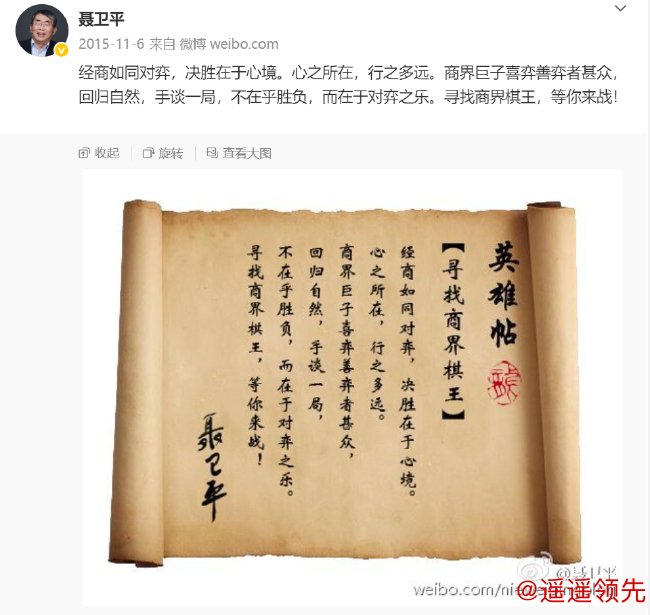 聂卫平
2015-11-6 来自 微博 weibo.com
经商如同对弈，决胜在于心境。心之所在，行之多远。商界巨子喜弈善弈者甚众，
回归自然，手谈一局，不在乎胜负，而在于对弈之乐。寻找商界棋王，等你来战！
收起 旋转 查看大图
英雄帖
【寻找商界棋王】
经商如同对弈，决胜在于心境。
心之所在，行之多远。
商界巨子喜弈善弈者甚众，
回归自然，手谈一局，
不在乎胜负，而在于对弈之乐。
寻找商界棋王，等你来战！
聂卫平
@聂卫平
@遥遥领先